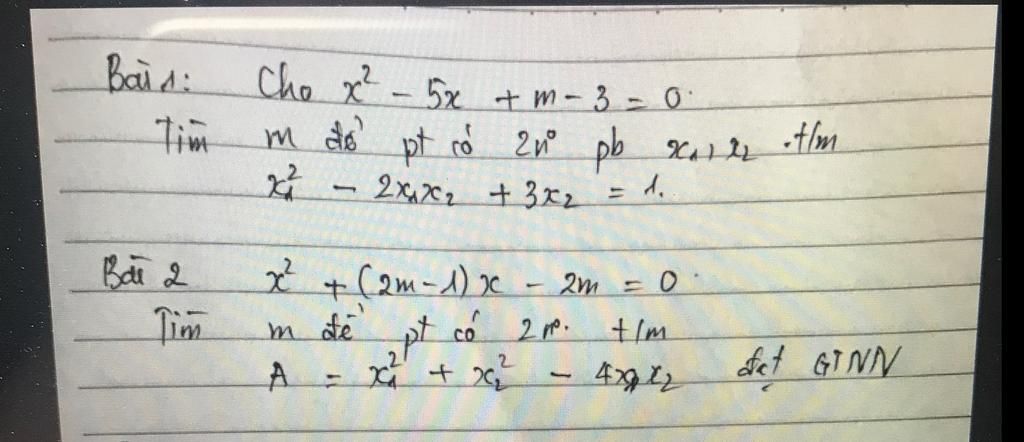 Bài 1: Cho x² - 5x + m - 3 = 0.
Tìm m để pt có 2n⁰ pb x₁, x₂ .t/m
x₁² - 2x₁x₂ + 3x₂ = 1.
Bài 2 x² + (2m-1)x - 2m = 0.
Tìm m để pt có 2n⁰. t/m
A = x₁² + x₂² - 4x₁x₂ đạt GTNN